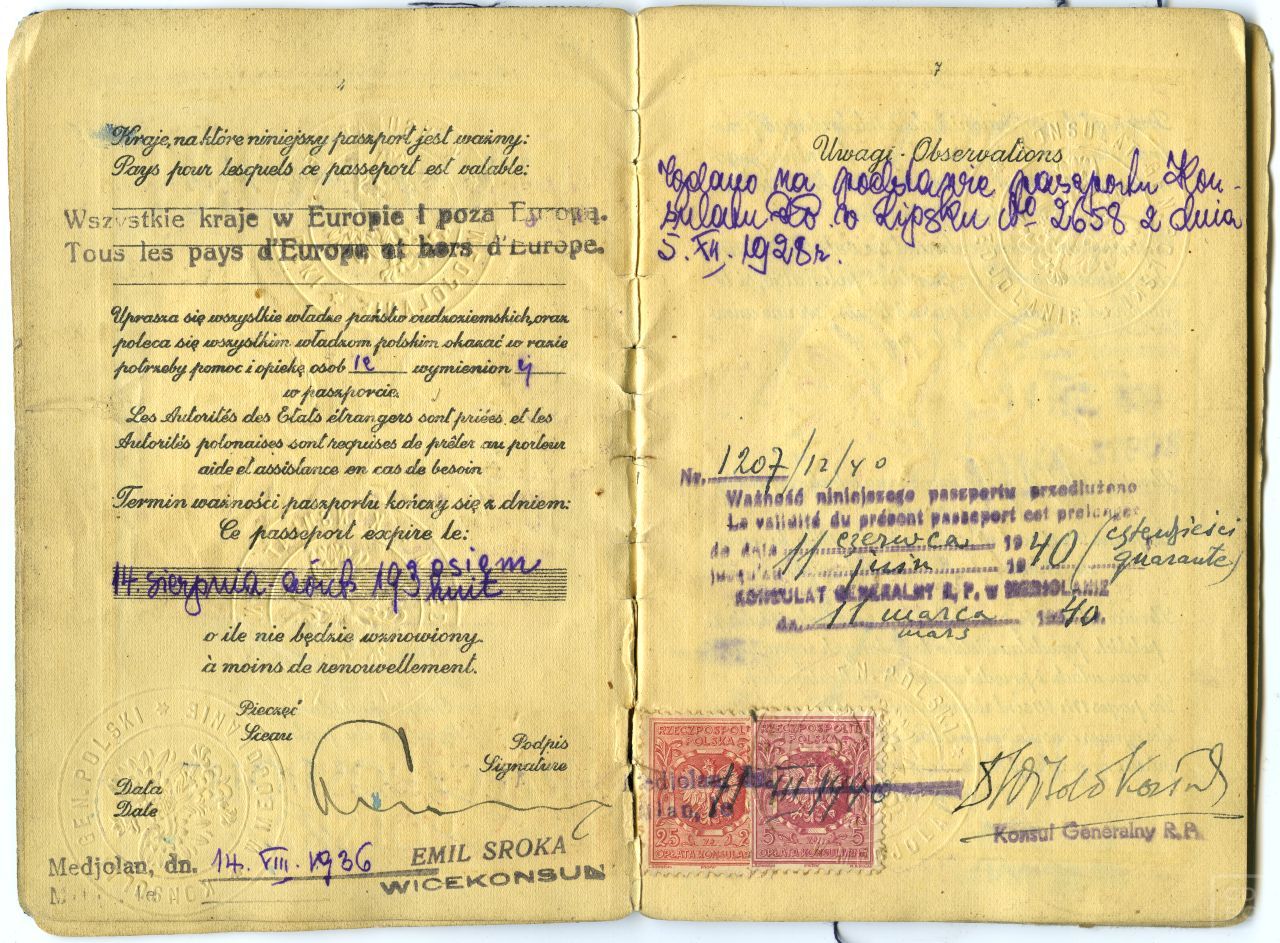 4
Kraje, na które niniejszy paszport jest ważny:
Pays pour lesquels ce passeport est valable:
Wszystkie kraje w Europie i poza Europą.
Tous les pays d'Europe et hors d'Europe.
Uprasza się wszystkie władze państw cudzoziemskich, oraz
poleca się wszystkim władzom polskim okazać w razie
potrzeby pomoc i opiekę osob ie wymienion ej
w paszporcie.
Les Autorités des Etats étrangers sont priées, et les
Autorités polonaises sont requises de prêter au porteur
aide et assistance en cas de besoin
Termin ważności paszportu kończy się z dniem:
Ce passeport expire le:
14. sierpnia août 193 osiem
huit
o ile nie będzie wznowiony.
à moins de renouvellement.
Pieczęć
Sceau
Podpis
Signature
Data
Date
Medjolan, dn. 14. VIII. 1936
EMIL SROKA
WICEKONSUL
7
Uwagi - Observations
Wydano na podstawie paszportu Kon-
sulatu w Lipsku No 2658 z dnia
5. XII. 1928 r.
Nr. 1207/12/40
Ważność niniejszego paszportu przedłużono
La validité du présent passeport est prolongée
do dnia 11 czerwca 1940 (czterdzieści
jusqu'au 11 juin 1940 quarante)
KONSULAT GENERALNY R. P. w MEDJOLANIE
dn. 11 marca 1940 r.
mars
RZECZPOSPOLITA
POLSKA
25 zł 25
OPŁATA KONSULARNA
RZECZPOSPOLITA
POLSKA
5 zł 5
OPŁATA KONSULARNA
Medjolan, 11 III 1940
Milan, le
Konsul Generalny R. P.